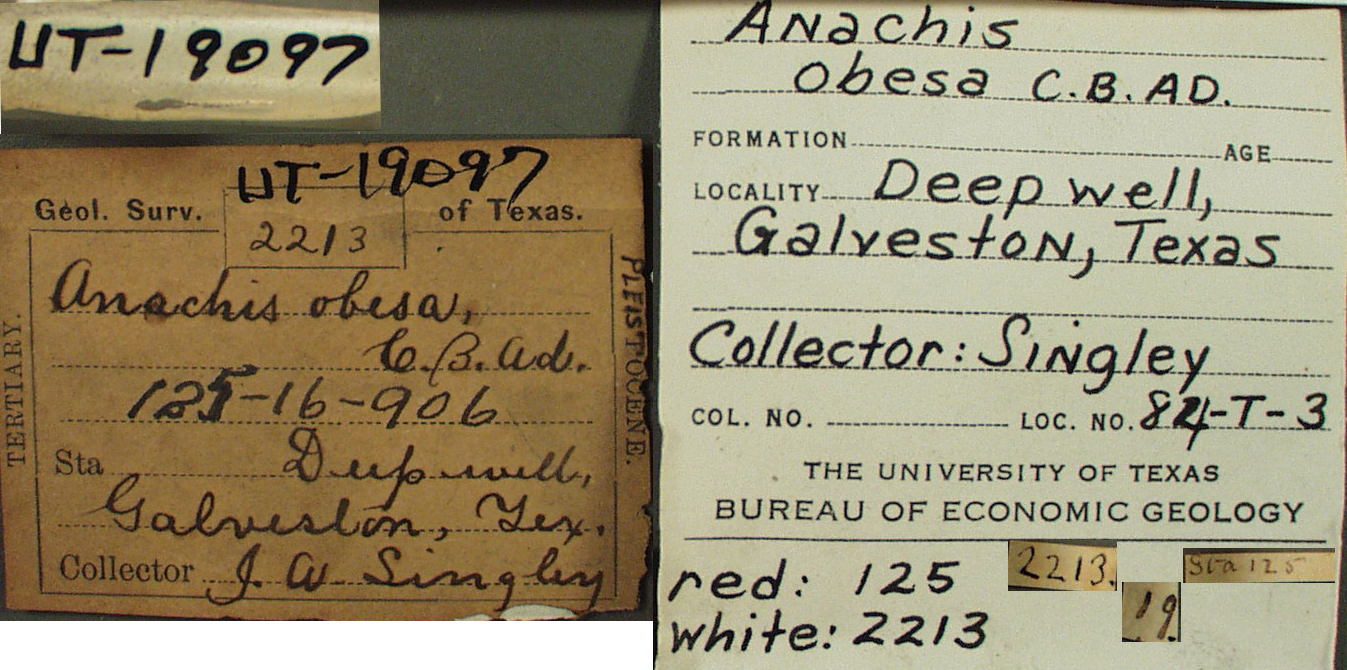 UT-19097
UT-19097
Geol. Surv. 2213 of Texas.
TERTIARY.
PLEISTOCENE.
Anachis obesa,
C. B. Ad.
125-16-906
Sta Deep well,
Galveston, Tex.
Collector J. A. Singley
Anachis
obesa C.B. AD.
FORMATION AGE
LOCALITY Deep well,
Galveston, Texas
Collector: Singley
COL. NO. LOC. NO. 84-T-3
THE UNIVERSITY OF TEXAS
BUREAU OF ECONOMIC GEOLOGY
red: 125
white: 2213
2213.
Sta 125
19